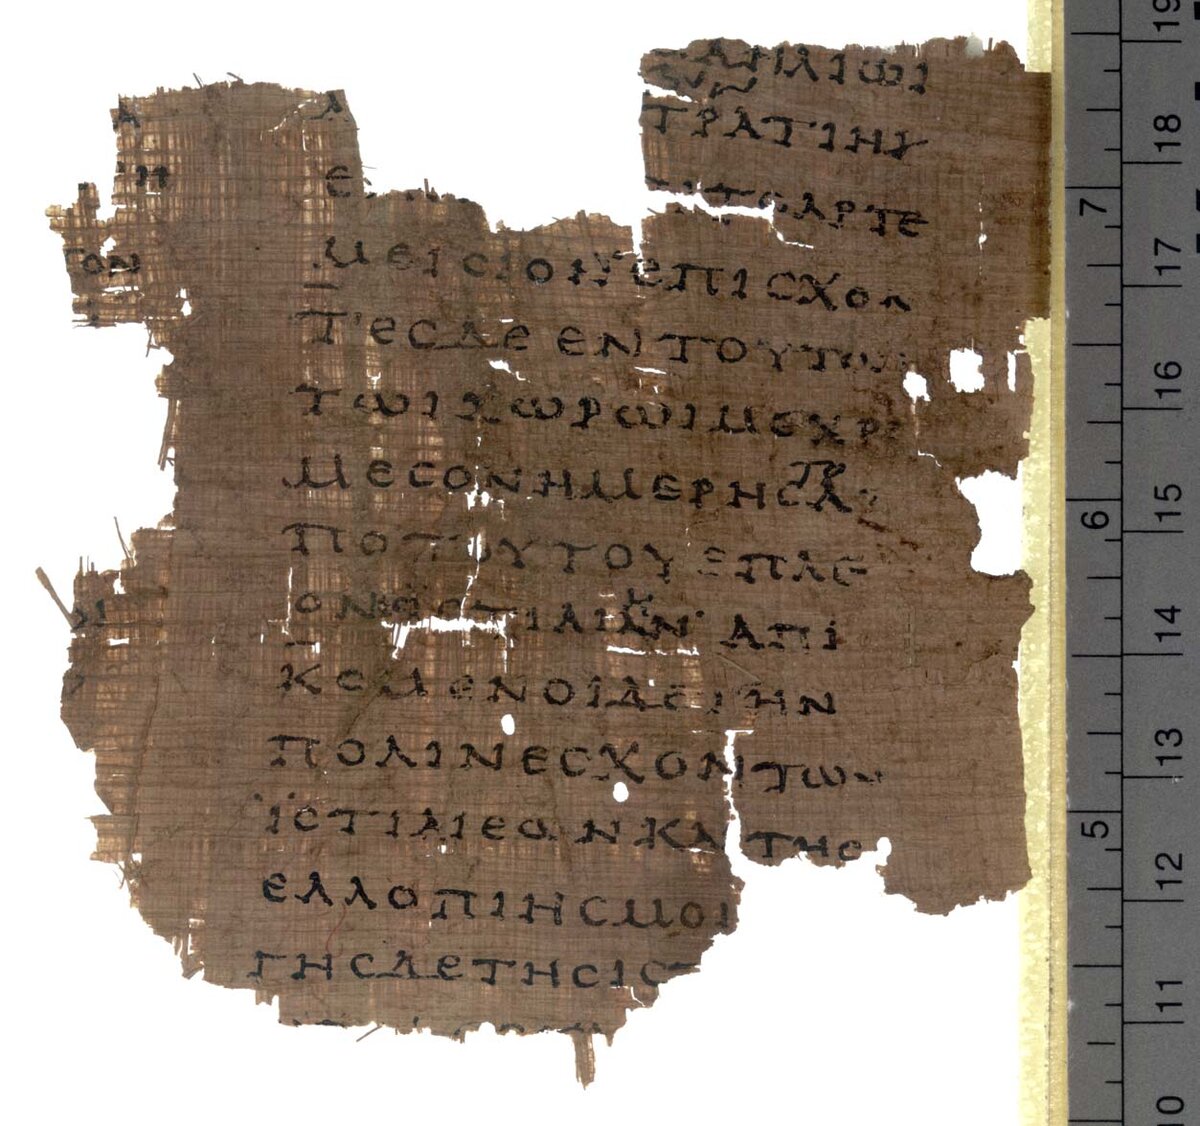 ΑΗΛΙΩΙ
ΤΡΑΤΙΗ
ΤΟΑΡΤΕ
ΤΟΝ
ΜΕΙCΙΟΝ ΕΠΙCΧΟΝ
ΤΕCΔΕ ΕΝΤΟΥΤΩ
ΤΩΙΧΩΡΩΙΜΕΧΡΙ
ΜΕCΟΝΗΜΕΡΗCΑ
ΠΟΤΟΥΤΟΥΕΠΛΕ
ΟΝΕCΤΙΑΙΑΝ ΑΠΙ
ΚΟΜΕΝΟΙΔΕΤΗΝ
ΠΟΛΙΝΕCΧΟΝΤΩΝ
ΪCΤΙΑΙΕΩΝΚΑΙΤΗC
ΕΛΛΟΠΙΗCΜΟΙ
ΓΗCΔΕΤΗCΙCΤ
19
18
17
16
15
14
13
12
11
10
7
6
5